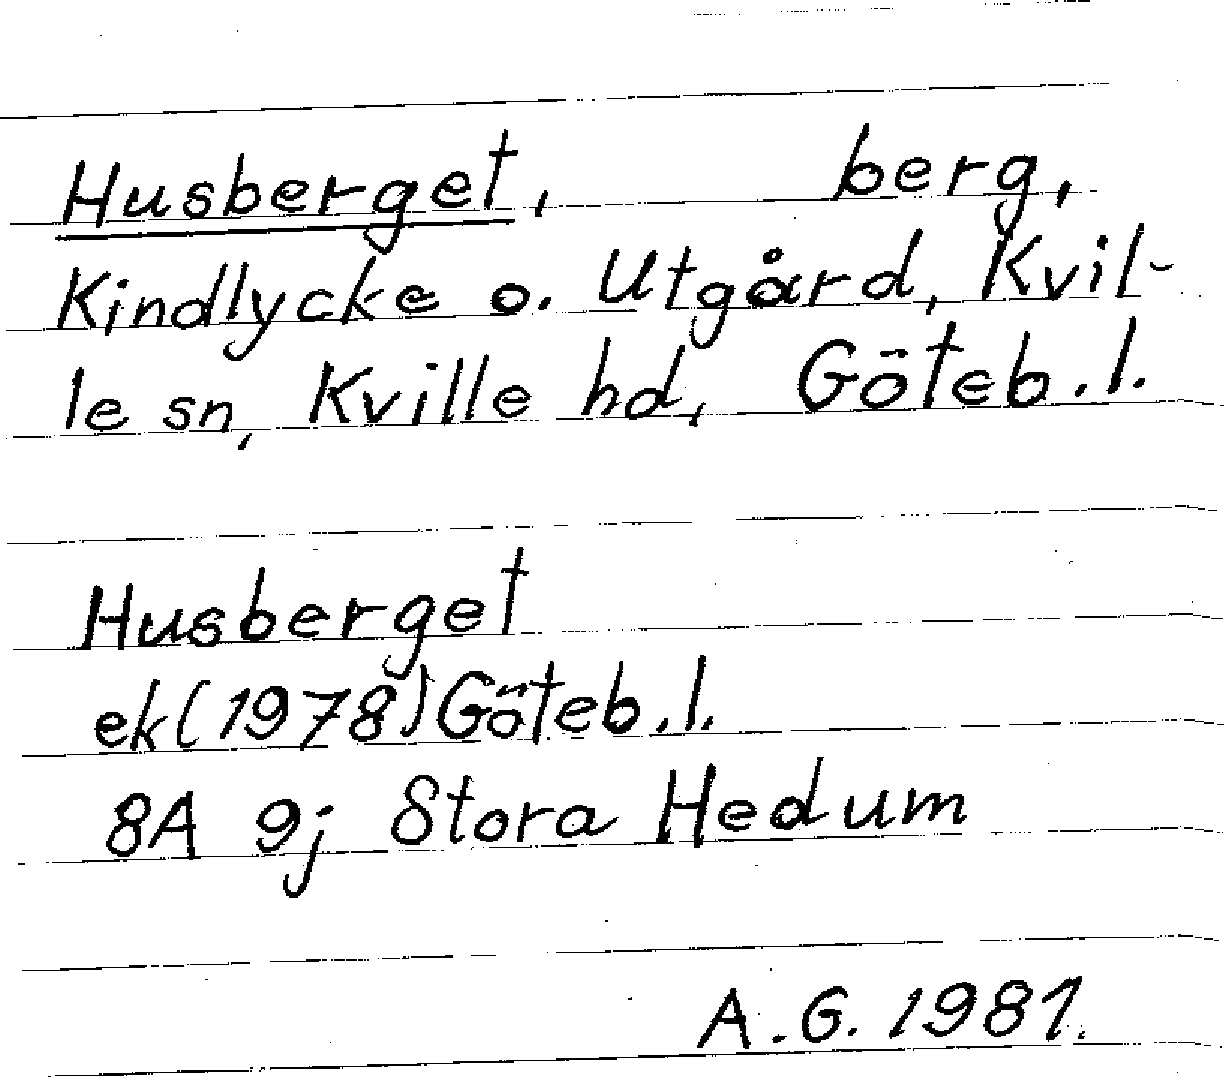 Husberget, berg,
Kindlycke o. Utgård, Kvil-
le sn, Kville hd, Göteb.l.
Husberget
ek(1978)Göteb.l.
8A 9j Stora Hedum
A.G. 1981.